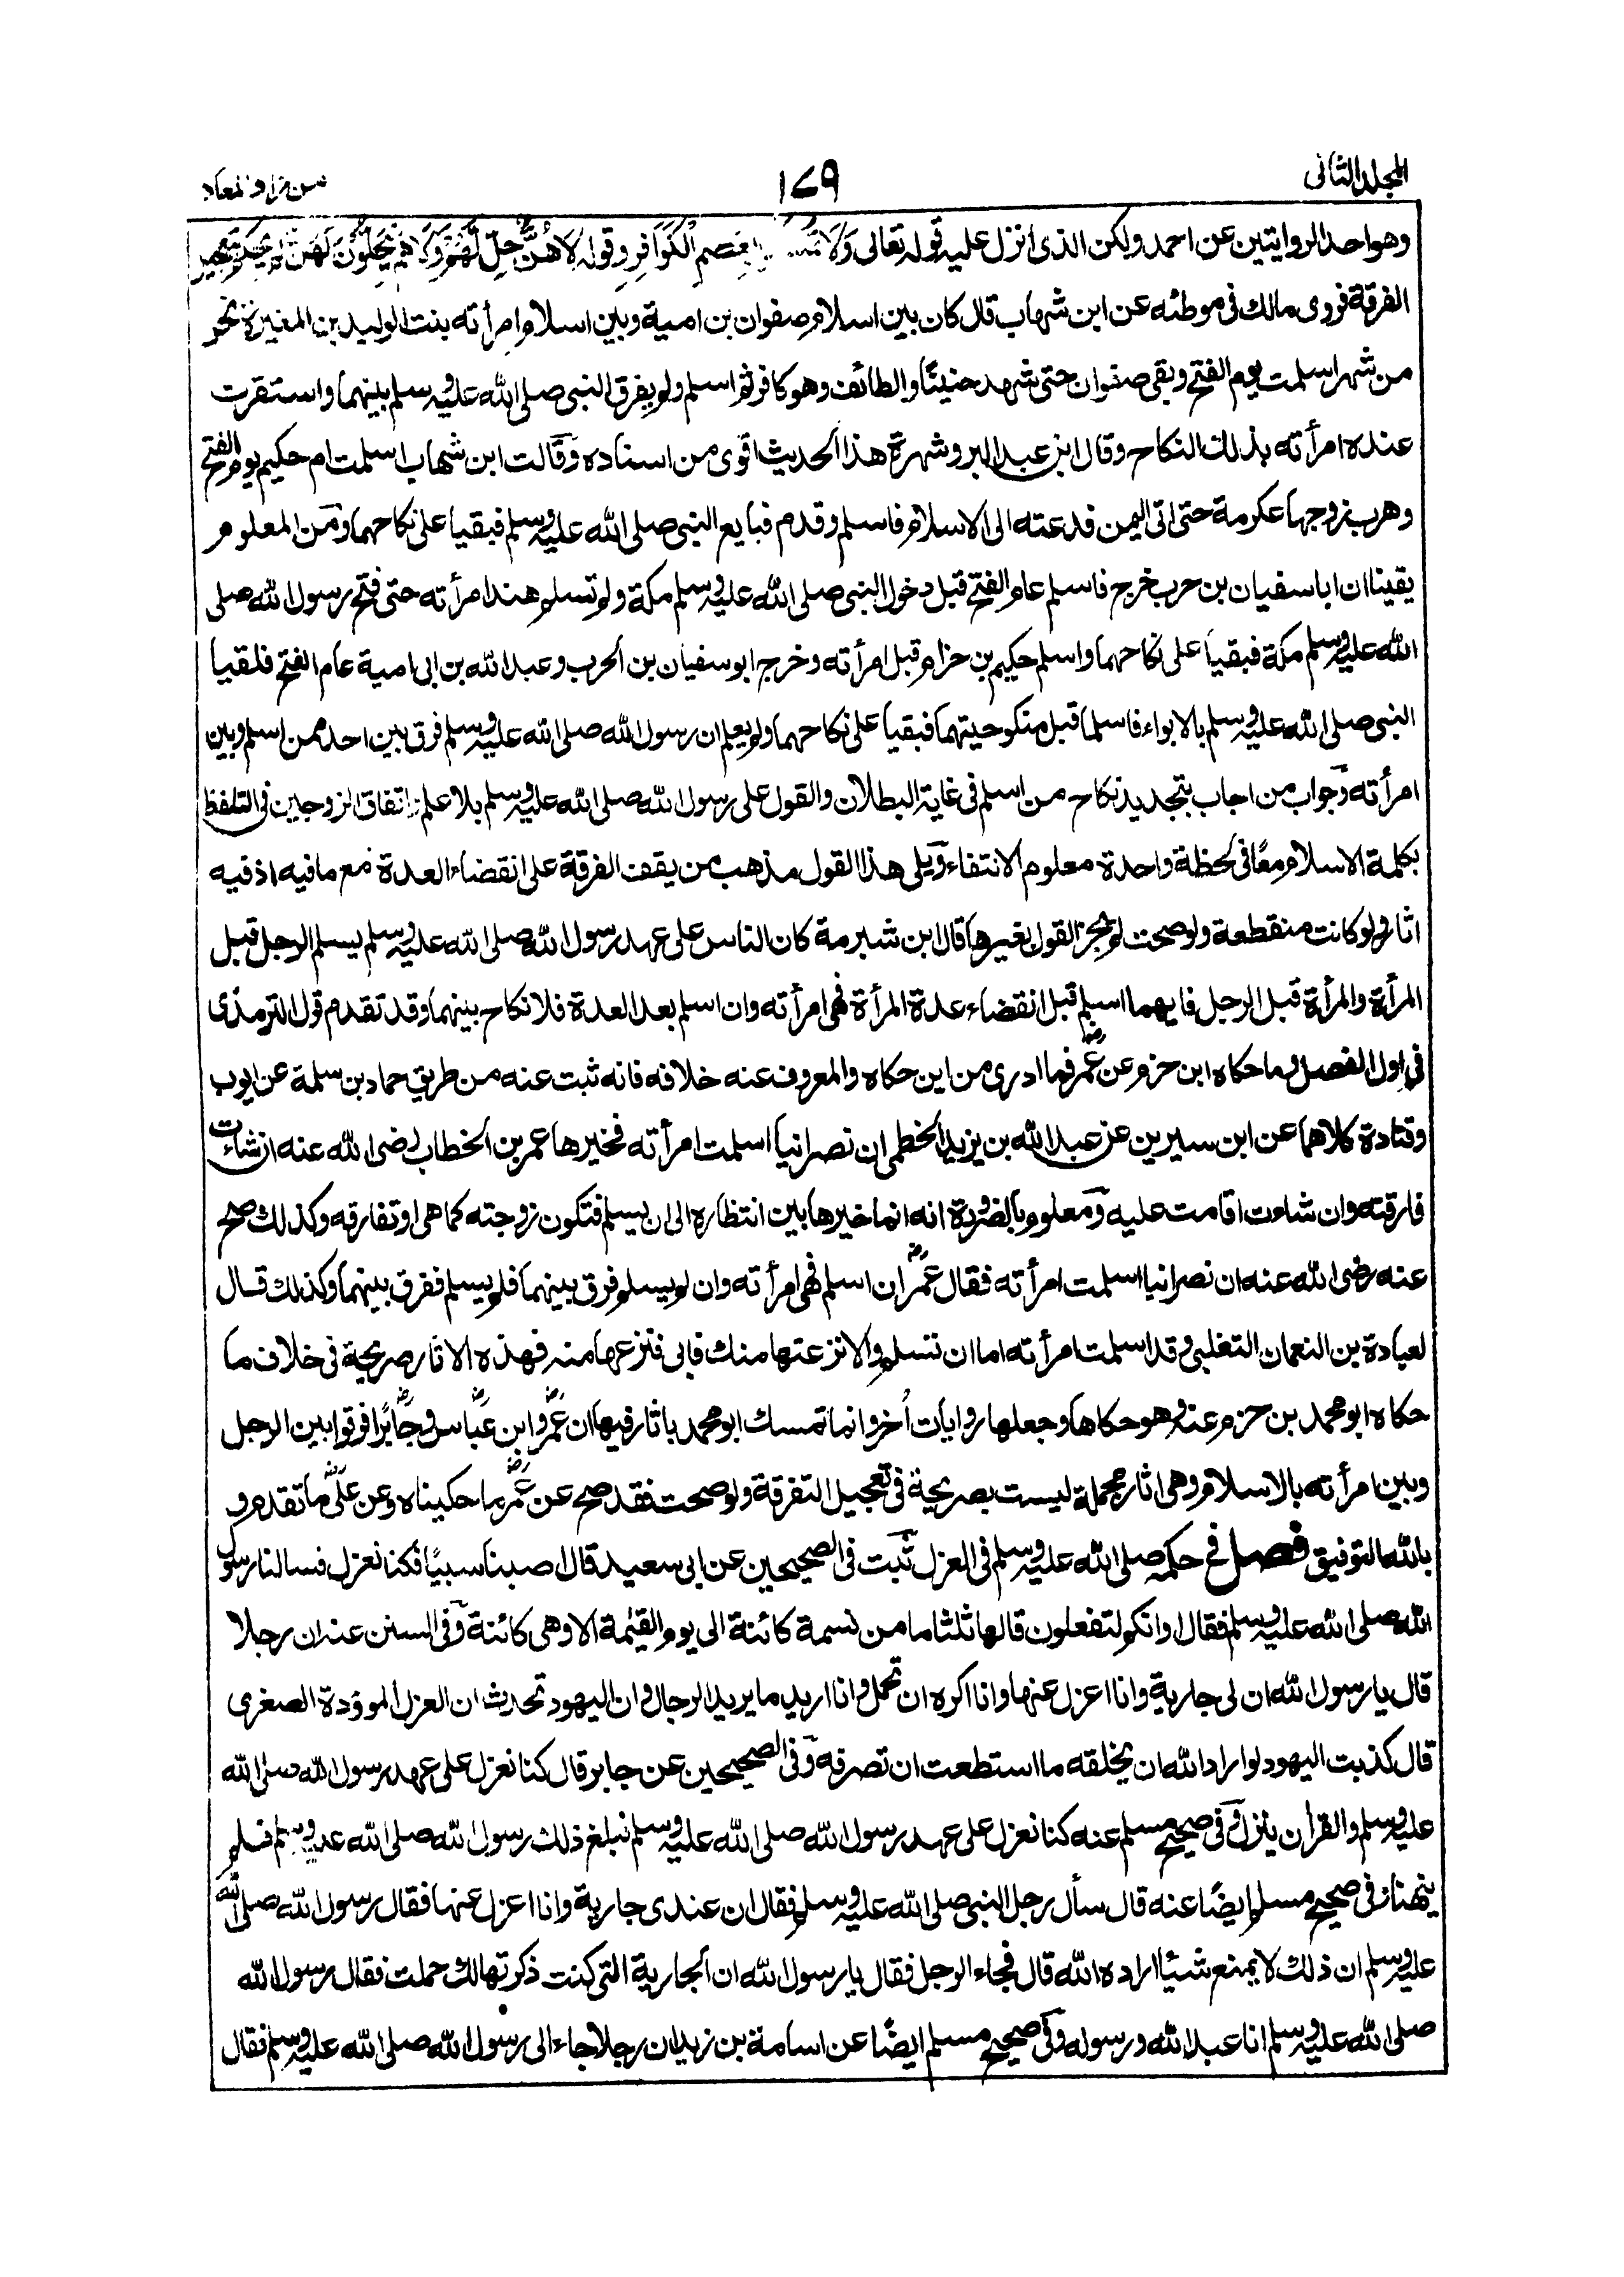 المجلد الثانى
١٧٩
من زاد المعاد
وهو احد الروايتين عن احمد ولكن الذى انزل عليه قوله تعالى وَلَا تُمْسِكُوا بِعِصَمِ الْكَوَافِرِ وقوله لَا هُنَّ حِلٌّ لَّهُمْ وَلَا هُمْ يَحِلُّونَ لَهُنَّ لم يحكم بتعجيل
الفرقة فروى مالك فى موطئه عن ابن شهاب قال كان بين اسلام صفوان بن امية وبين اسلام امرأته بنت الوليد بن المغيرة نحو
من شهر اسلمت يوم الفتح وبقى صفوان حتى شهد حنينًا والطائف وهو كافر ثم اسلم ولم يفرق النبى صلى الله عليه وسلم بينهما واستقرت
عنده امرأته بذلك النكاح وقال ابن عبد البر وشهرة هذا الحديث اقوى من اسناده وقالت ابن شهاب اسلمت ام حكيم يوم الفتح
وهرب زوجها عكرمة حتى اتى اليمن فدعته الى الاسلام فاسلم وقدم فبايع النبى صلى الله عليه وسلم فبقيا على نكاحهما ومن المعلوم
يقينا ان ابا سفيان بن حرب خرج فاسلم عام الفتح قبل دخول النبى صلى الله عليه وسلم مكة ولم تسلم هند امرأته حتى فتح رسول الله صلى
الله عليه وسلم مكة فبقيا على نكاحهما واسلم حكيم بن حزام قبل امرأته وخرج ابو سفيان بن الحرب وعبد الله بن ابى امية عام الفتح فلقيا
النبى صلى الله عليه وسلم بالابواء فاسلما قبل منكوحيتهما فبقيا على نكاحهما ولم يعلم ان رسول الله صلى الله عليه وسلم فرق بين احد ممن اسلم وبين
امرأته وجواب من اجاب بتجديد نكاح من اسلم فى غاية البطلان والقول على رسول الله صلى الله عليه وسلم بلا علم اتفاق الزوجين فى التلفظ
بكلمة الاسلام معًا فى لحظة واحدة معلوم الانتفاء ويلى هذا القول مذهب من يقف الفرقة على انقضاء العدة مع ما فيه اذ فيه
اثار ولو كانت منقطعة ولو صحت لم يجز القول بغيرها قال ابن شبرمة كان الناس على عهد رسول الله صلى الله عليه وسلم يسلم الرجل قبل
المرأة والمرأة قبل الرجل فايهما اسلم قبل انقضاء عدة المرأة فهى امرأته وان اسلم بعد العدة فلا نكاح بينهما وقد تقدم قول الترمذى
فى اول الفصل وما حكاه ابن حزم عن عمر فما ادرى من اين حكاه والمعروف عنه خلافه فانه ثبت عنه من طريق حماد بن سلمة عن ايوب
وقتادة كلاهما عن ابن سيرين عن عبد الله بن يزيد الخطمى ان نصرانيا اسلمت امرأته فخيرها عمر بن الخطاب رضى الله عنه ان شاءت
فارقته وان شاءت اقامت عليه ومعلوم بالضرورة انه انما خيرها بين انتظاره الى ان يسلم فتكون زوجته كما هى او تفارقه وكذلك صح
عنه رضى الله عنه ان نصرانيا اسلمت امرأته فقال عمر ان اسلم فهى امرأته وان لم يسلم فرق بينهما فلم يسلم ففرق بينهما وكذلك قال
لعبادة بن النعمان التغلبى وقد اسلمت امرأته اما ان تسلم والا نزعتها منك فابى فنزعها منه فهذه الاثار صريحة فى خلاف ما
حكاه ابو محمد بن حزم عنه وهو حكاها وجعلها روايات أخر وانما تمسك ابو محمد باثار فيها ان عمر وابن عباس وجابرًا فرقوا بين الرجل
وبين امرأته بالاسلام وهى اثار مجملة ليست بصريحة فى تعجيل التفرقة ولو صحت فقد صح عن عمر ما حكيناه وعن على ما تقدم و
بالله التوفيق فصل فى حكمه صلى الله عليه وسلم فى العزل ثبت فى الصحيحين عن ابى سعيد قال اصبنا سبيًا فكنا نعزل فسالنا رسول
الله صلى الله عليه وسلم فقال اوانكم لتفعلون قالها ثلثا ما من نسمة كائنة الى يوم القيمة الا وهى كائنة وفى السنن عنه ان رجلا
قال يا رسول الله ان لى جارية وانا اعزل عنها وانا اكره ان تحمل وانا اريد ما يريد الرجال وان اليهود تحدث ان العزل الموؤدة الصغرى
قال كذبت اليهود لو اراد الله ان يخلقه ما استطعت ان تصرفه وفى الصحيحين عن جابر قال كنا نعزل على عهد رسول الله صلى الله
عليه وسلم والقرأن ينزل وفى صحيح مسلم عنه كنا نعزل على عهد رسول الله صلى الله عليه وسلم فبلغ ذلك رسول الله صلى الله عليه وسلم فلم
ينهنا وفى صحيح مسلم ايضًا عنه قال سأل رجل النبى صلى الله عليه وسلم فقال ان عندى جارية وانا اعزل عنها فقال رسول الله صلى الله
عليه وسلم ان ذلك لا يمنع شيئًا اراده الله قال فجاء الرجل فقال يا رسول الله ان الجارية التى كنت ذكرتها لك حملت فقال رسول الله
صلى الله عليه وسلم انا عبد الله ورسوله وفى صحيح مسلم ايضًا عن اسامة بن زيد ان رجلا جاء الى رسول الله صلى الله عليه وسلم فقال